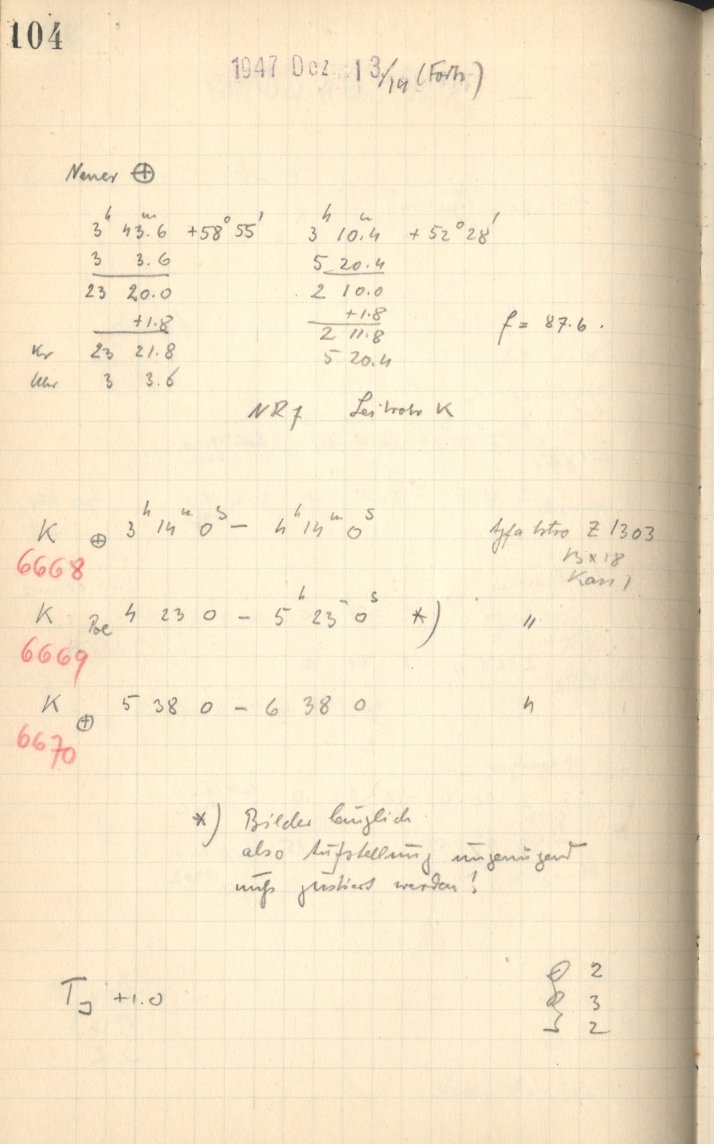 104
1947 Dez. 13/14 (Forts)
Neuer ⊕
3ʰ 43.6ᵐ +58° 55' 3ʰ 10.4ᵐ +52° 28'
3 3.6 5 20.4
23 20.0 2 10.0
+1.8 +1.8
f = 87.6.
2 11.8
Kr 23 21.8 5 20.4
Uhr 3 3.6
NR7 Leitrohr K
K ⊕ 3ʰ 14ᵐ 0ˢ — 4ʰ 14ᵐ 0ˢ Agfa Astro Z 1303
6668 13 x 18
Kass 1
K 4 23 0 — 5ʰ 23 0ˢ *) "
6669
K ⊕ 5 38 0 — 6 38 0 "
6670
*) Bilder länglich
also Aufstellung ungenügend
muß justiert werden!
+1.0
2
3
2